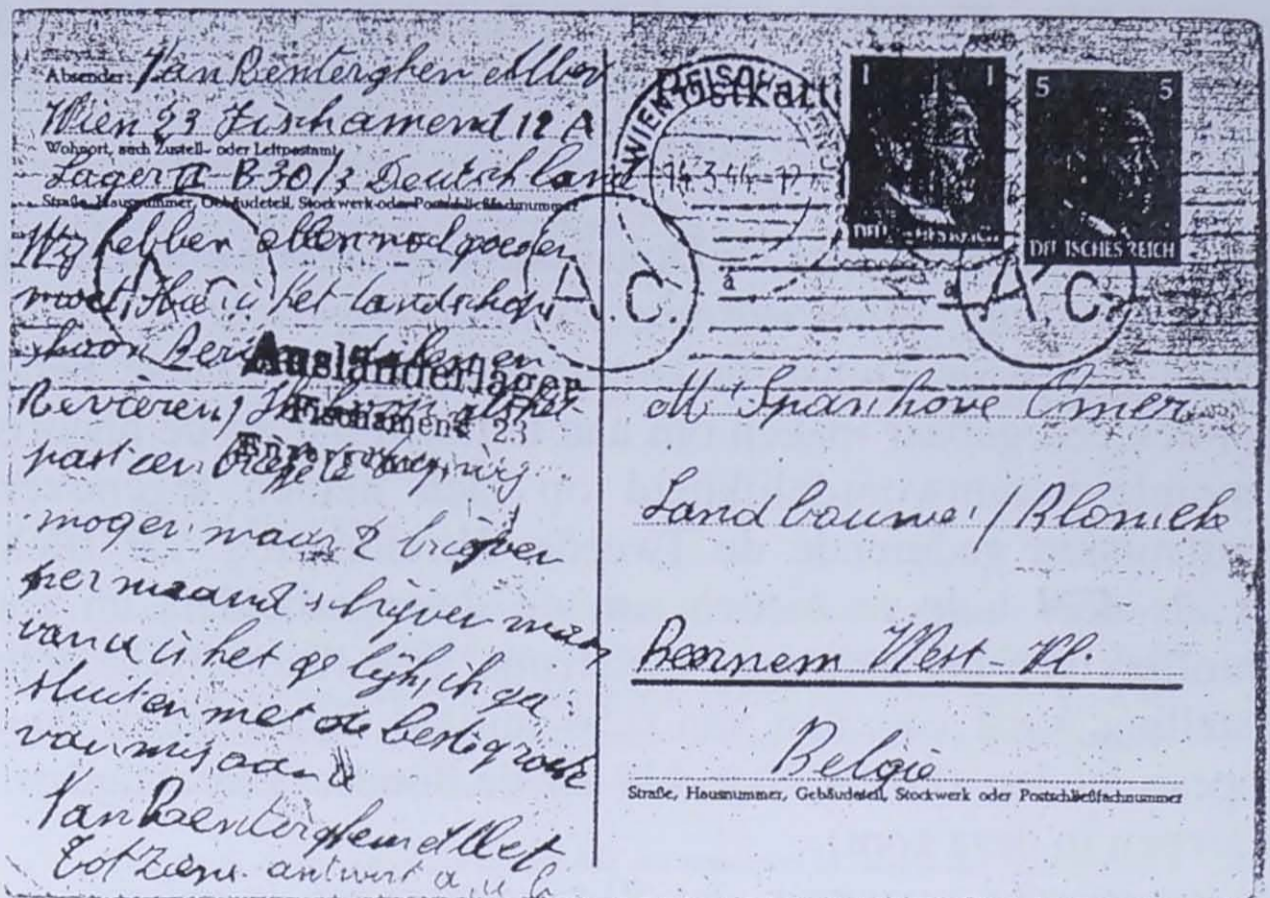 Absender: Van Renterghem Alber
Wien 23 Fischamend 12 A
Wohnort, auch Zustell- oder Leitpostamt
Lager II B30/3 Deutschland
Straße, Hausnummer, Gebäudeteil, Stockwerk oder Postschließfachnummer
Wij hebben allen goeden
moet, hier is het landschap
schoon en
Revieren,
past een
mogen maar 2 brieven
per maand schrijven maar
van u is het gelijk, ik ga
sluiten met de beste groete
van mij aan u
Van Renterghem Albert
tot ziens. antwort a.u.b
Ausländerlager
Fischamend 23
A.C.
Postkarte
WIEN
14.3.44-12
1 1
DEUTSCHES REICH
5 5
DEUTSCHES REICH
A.C.
A.C.
Mr Spanhove Omer
Landbouwer / Blomiek
Beernem West-Vl.
België
Straße, Hausnummer, Gebäudeteil, Stockwerk oder Postschließfachnummer